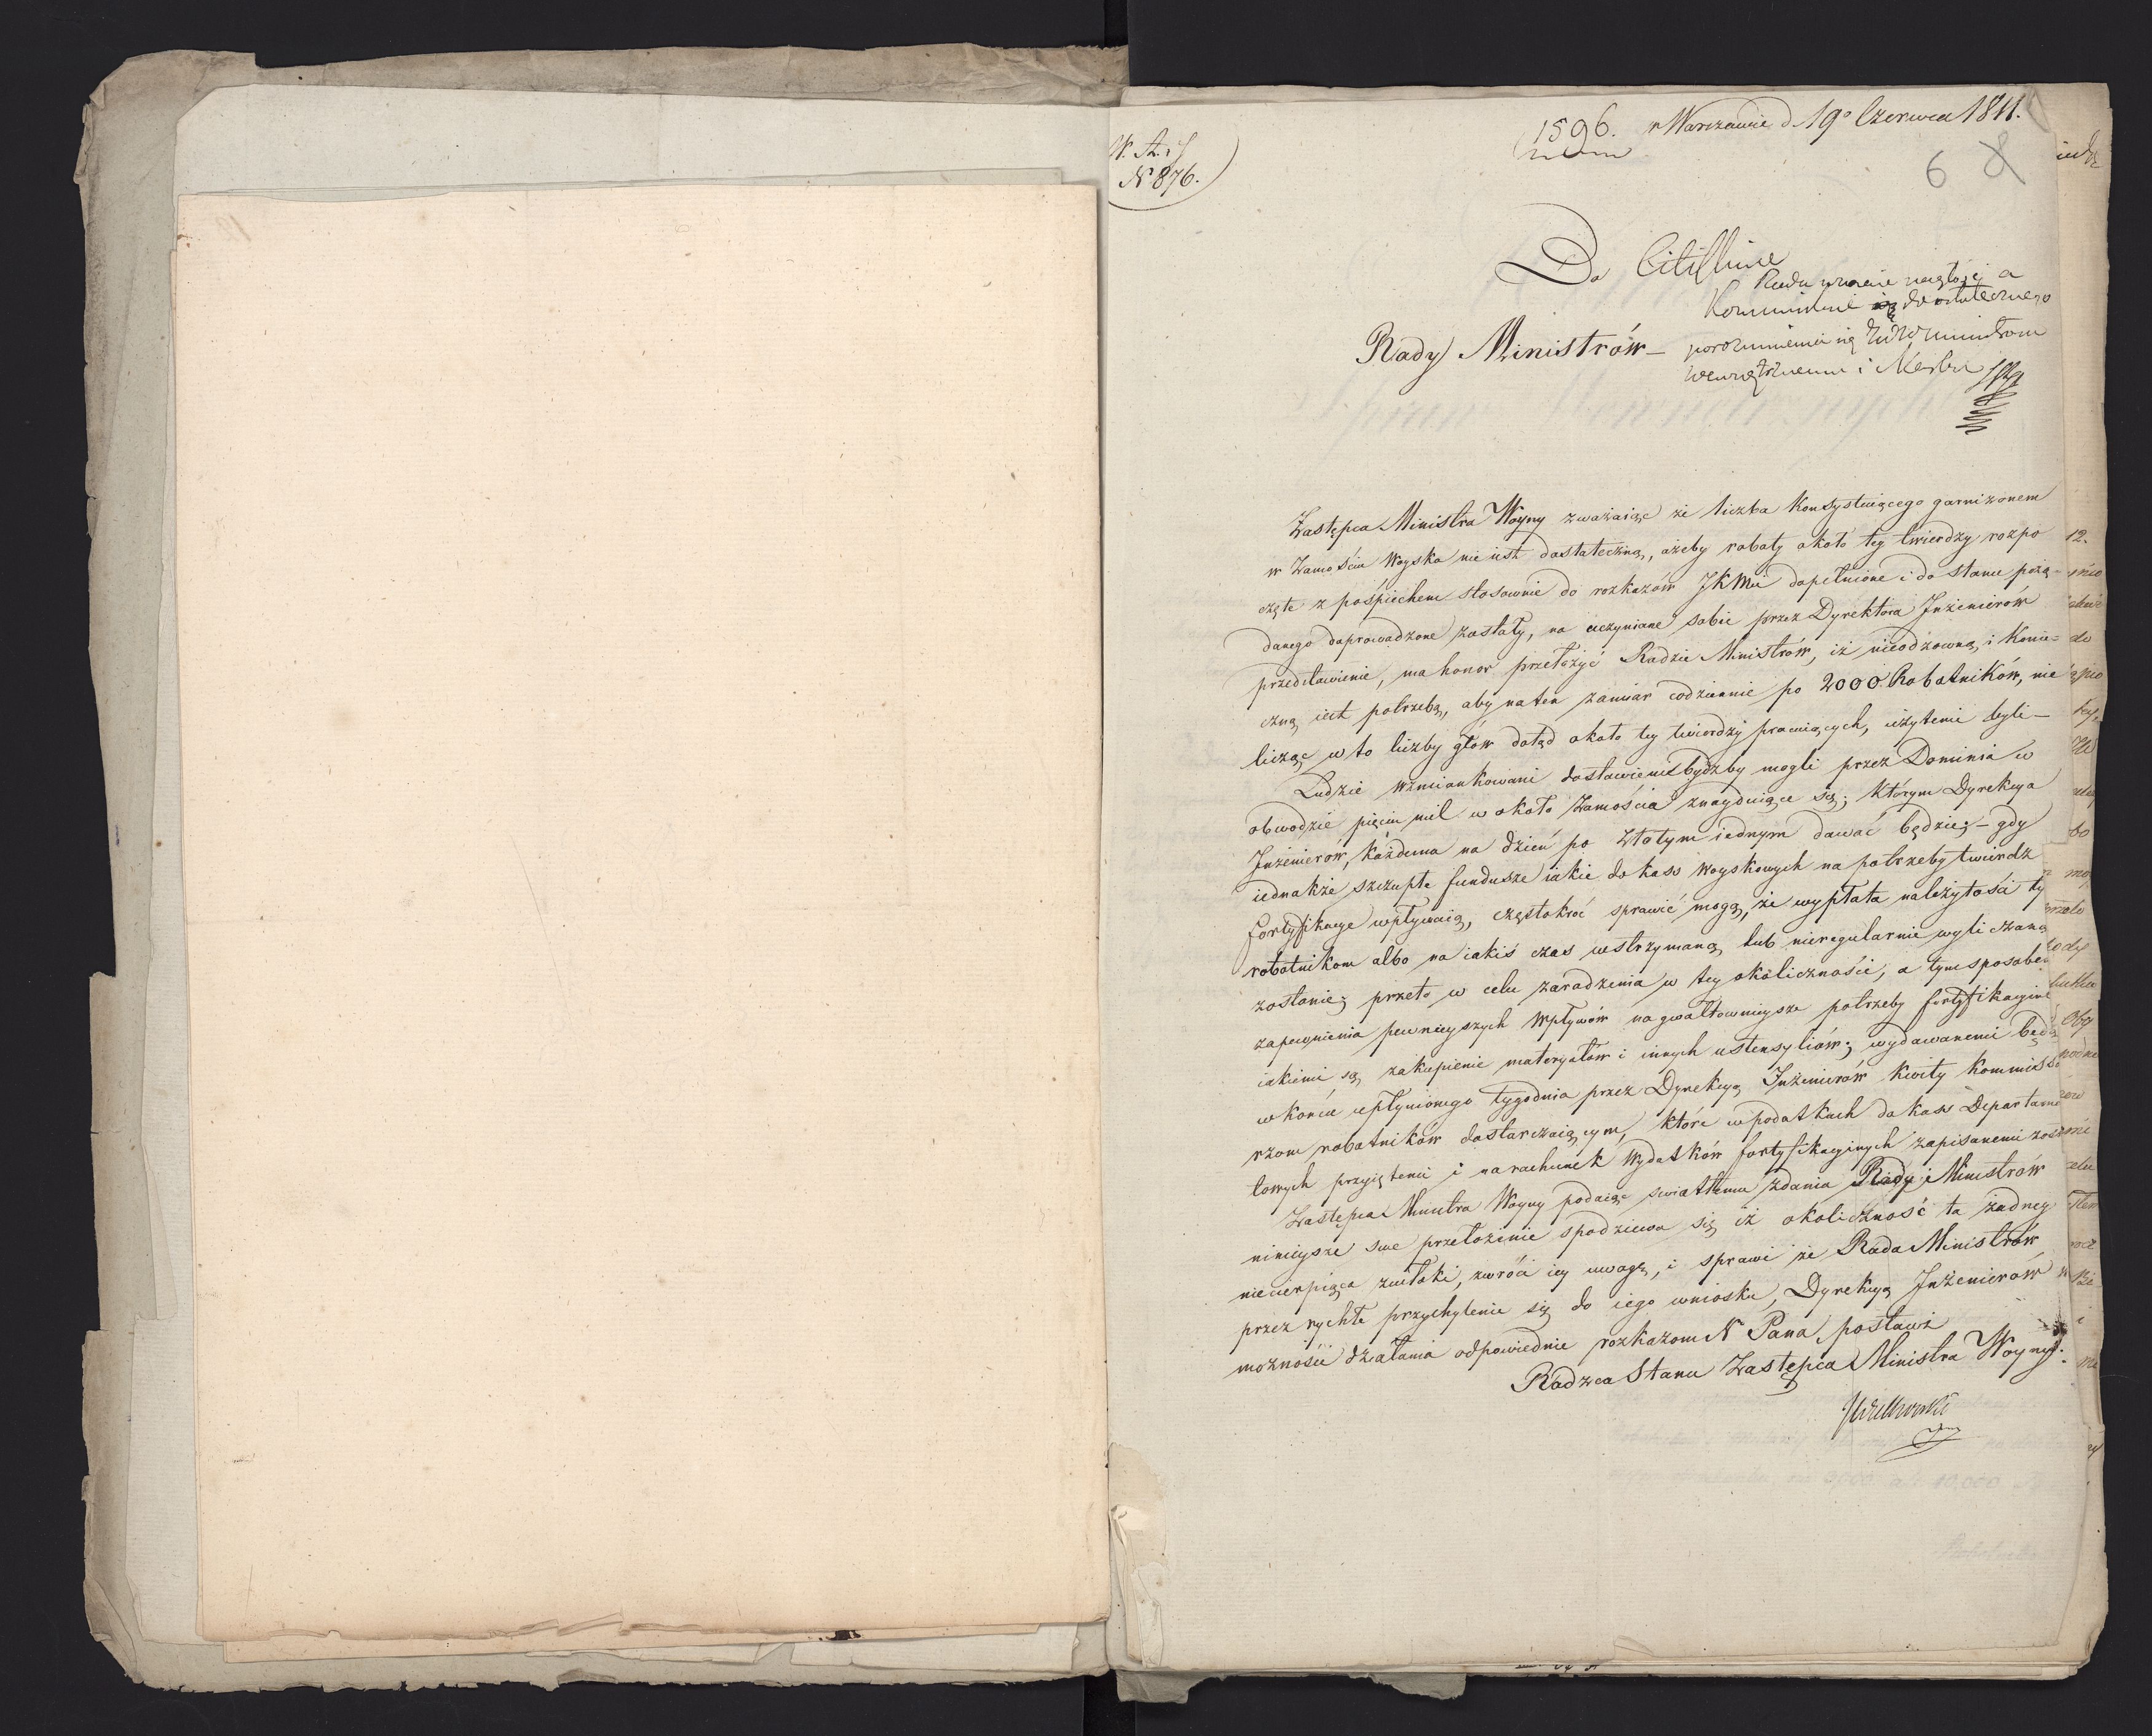 1596. w Warszawie d 19° Czerwca 1811.
N 876.
6 8
Do
Citissime
Rady Ministrów
Kommunikuie się do ostatecznego
porozumienia się
wewnętrznemu i
Zastępca Ministra Woyny zważaiąc że liczba konsystuiącego garnizonem
w Zamościu Woyska nie iest dostateczną, ażeby roboty około tey twierdzy rozpo
częte z pośpiechem stosownie do rozkazów JKMci dopełnione i do stanu pożą-
danego doprowadzone zostały, na uczynione sobie przez Dyrektora Inżenierów
przedstawienie, ma honor przełożyć Radzie Ministrów, iż nieodzowną i konie=
czną iest potrzebą, aby na ten zamiar codziennie po 2000 Robotników, nie
licząc w to liczby głów dotąd około tey twierdzy pracuiących, użytemi byli-
Ludzie wzmiankowani dostawieni bydźby mogli przez Dominia w
obwodzie pięciu mil w około Zamościa znayduiące się; którym Dyrekcya
Inżenierów, każdemu na dzień po złotym iednym dawać będzie; - gdy
iednakże szczupłe fundusze iakie do kass woyskowych na potrzeby twierdz
fortyfikacye wpływaią, częstokroć sprawić mogą, że wypłata należytości ty
robotnikom albo na iakiś czas wstrzymaną, lub nieregularnie wyliczaną
zostanie; przeto w celu zaradzenia w tey okoliczności, a tym sposobem
zapewnienia pewnieyszych wpływów na gwałtownieysze potrzeby fortyfikacyine
iakiemi są zakupienie materyałów i innych ustensyliów; wydawanemi będą
w końcu upłynionego tygodnia przez Dyrekcyą Inżenierów kwity kommisso
rzom robotników dostarczaiącym, które w podatkach do kass Departame
towych przyiętemi i na rachunek wydatków fortyfikacyinych zapisanemi zost
Zastępca Ministra Woyny podaiąc światłemu zdaniu Rady Ministrów
ninieysze swe przełożenie spodziewa się iż okoliczność ta żadney
niecierpiąca zwłoki, zwróci iey uwagę, i sprawi że Rada Ministrów
przez rychłe przychylenie się do iego wniosku, Dyrekcyą Inżenierów w
możności działania odpowiednie rozkazom N Pana postawi
Radzca Stanu Zastępca Ministra Woyny.
Wielhorski